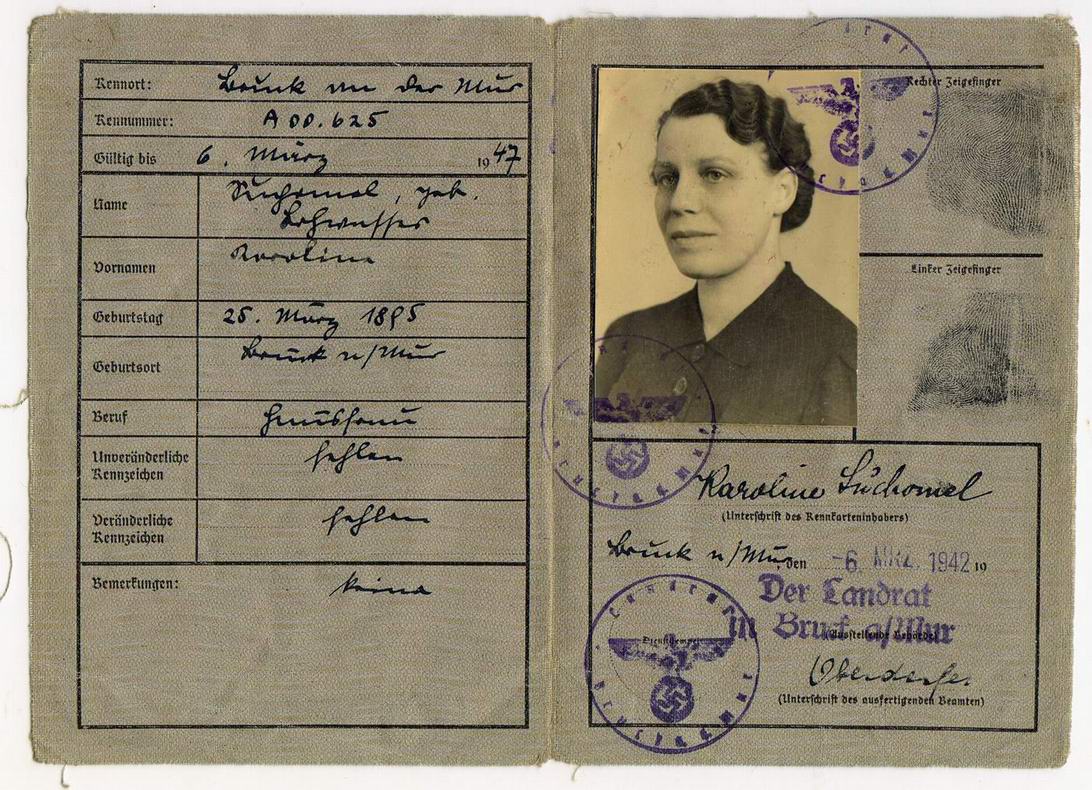 Kennort: Bruck an der Mur
Kennummer: A 00.625
Gültig bis 6. März 1947
Name Suchomel, geb.
Lohwasser
Vornamen Karoline
Geburtstag 25. März 1895
Geburtsort Bruck a/Mur
Beruf Hausfrau
Unveränderliche
Kennzeichen fehlen
Veränderliche
Kennzeichen fehlen
Bemerkungen: keine
Rechter Zeigefinger
Linker Zeigefinger
Karoline Suchomel
(Unterschrift des Kennkarteninhabers)
Bruck a/Mur, den -6. MRZ. 1942 19
Der Landrat
in Bruck a/Mur
(Ausstellende Behörde)
Dienststempel
(Unterschrift des ausfertigenden Beamten)